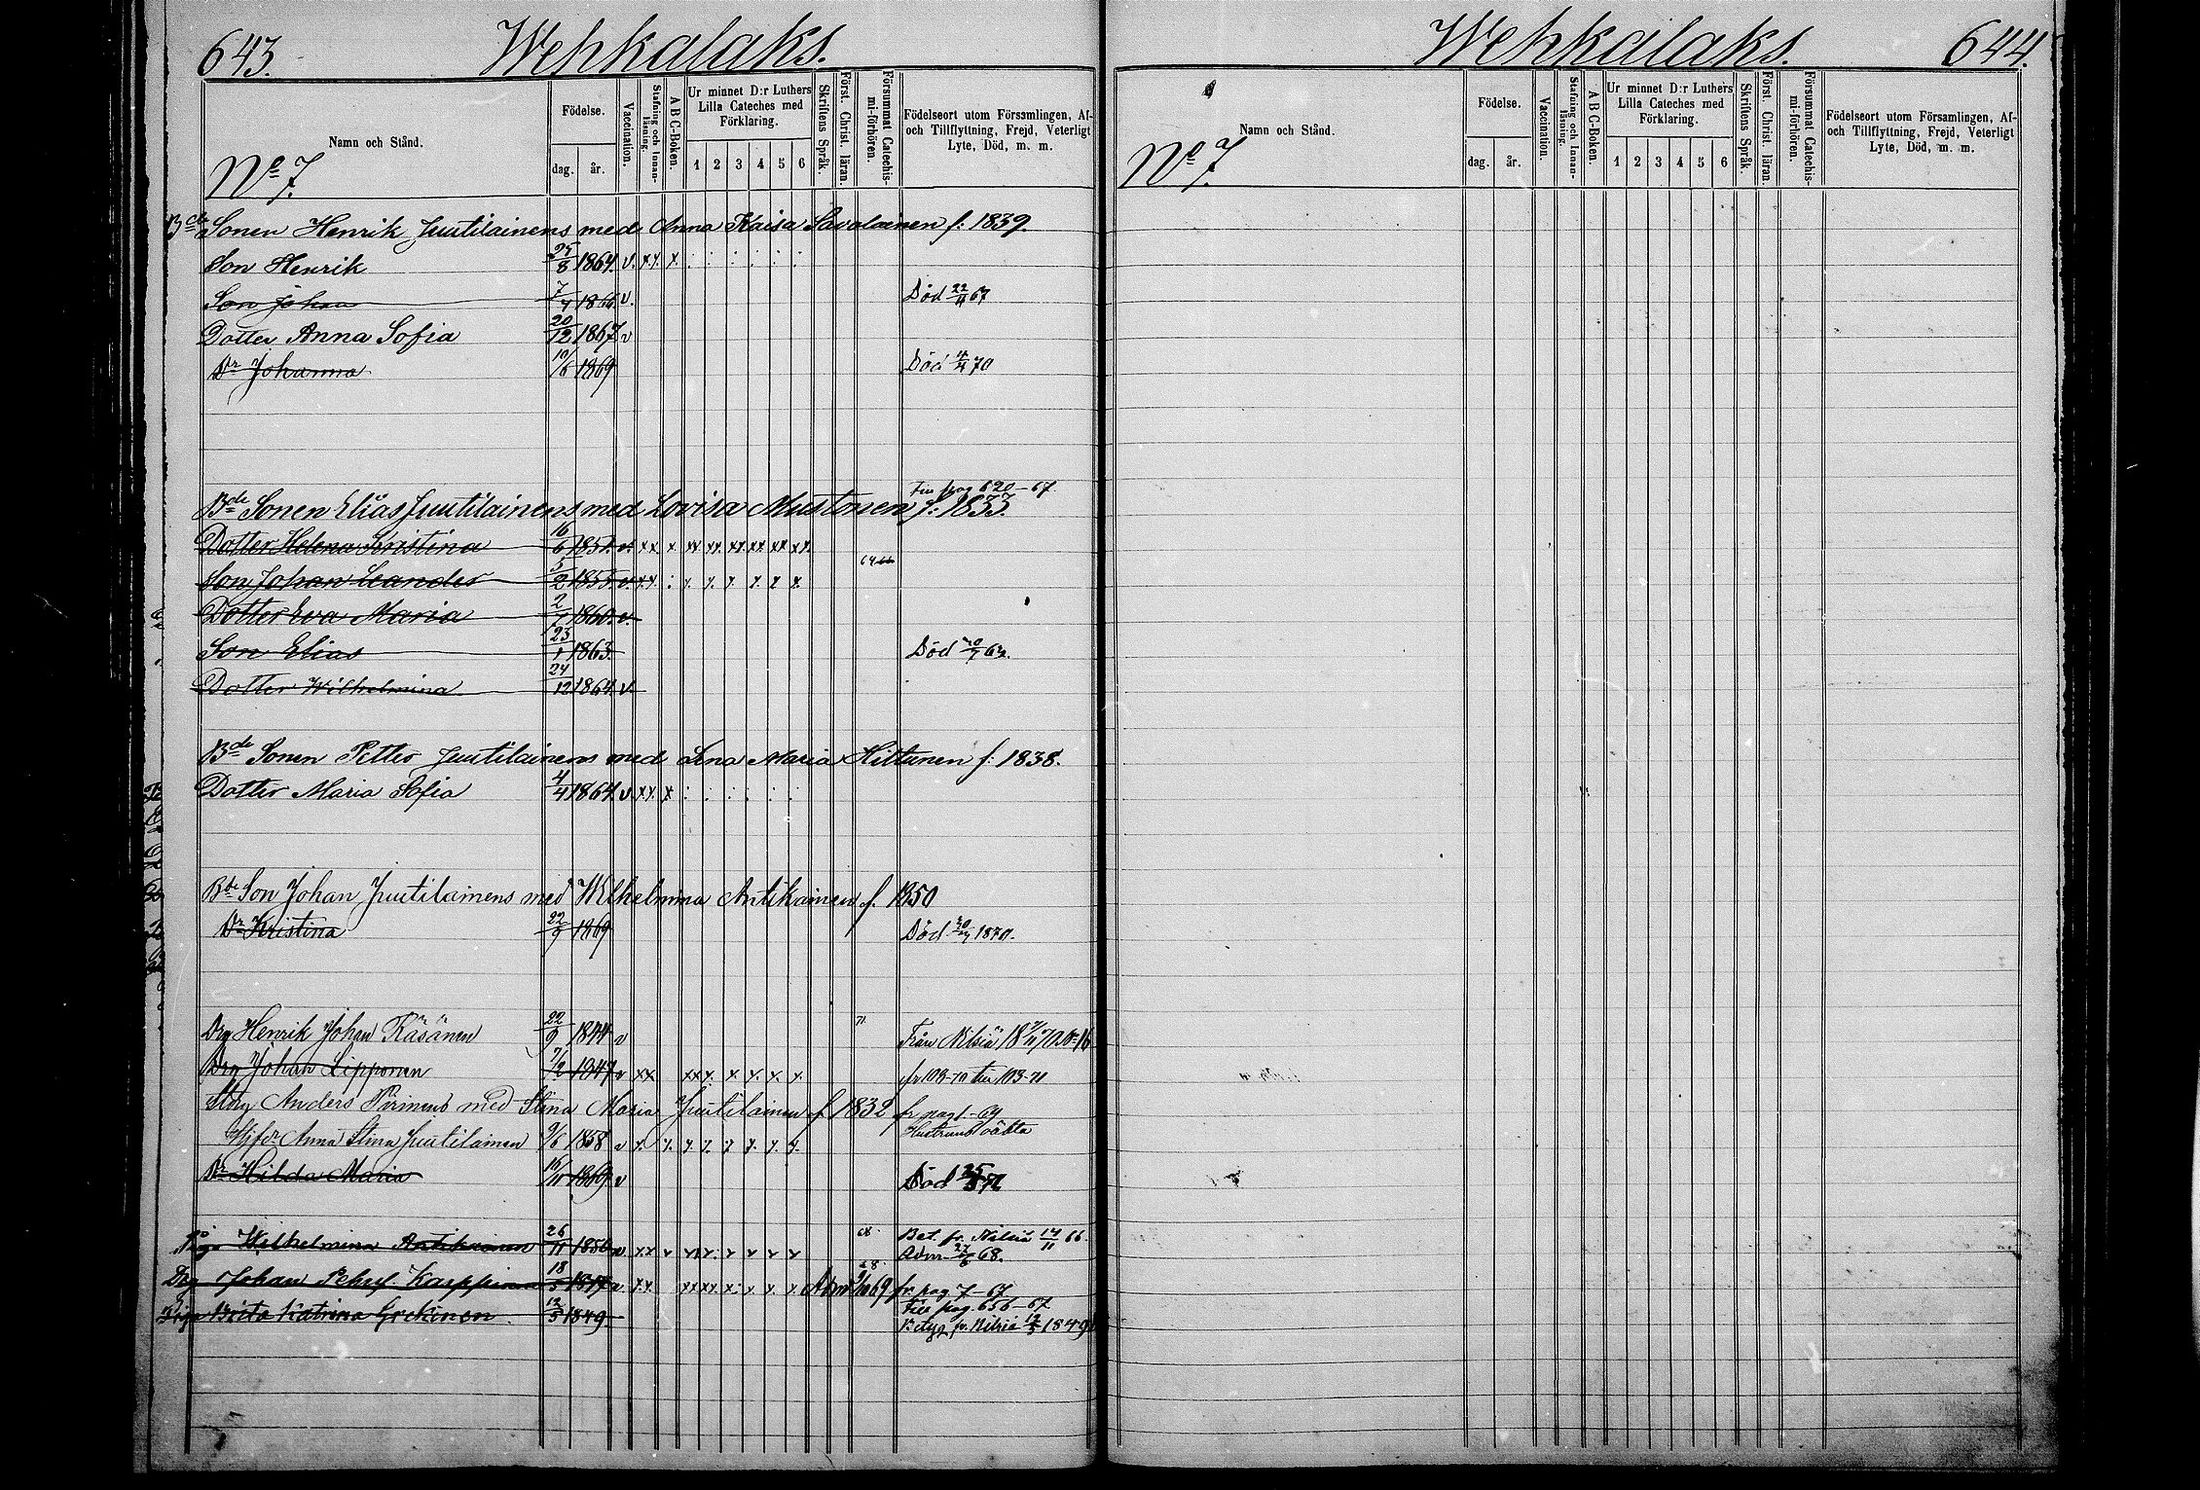 643. Wehkalaks.
Namn och Stånd.
Födelse.
dag. år.
Vaccination.
Stafning och Innan-läsning.
A B C-Boken.
Ur minnet D:r Luthers Lilla Cateches med Förklaring.
1 2 3 4 5 6
Skriftens Språk.
Först. Christ. läran.
Försummat Catechis-mi-förhören.
Födelseort utom Församlingen, Af- och Tillflyttning, Frejd, Veterligt Lyte, Död, m. m.
No 7.
Bde Sonen Henrik Juutilainens med Anna Kaisa Savolainen f: 1839.
Son Henrik 25/8 1864. v. x x. x.
Son Johan 7/4 1866. v. Död 22/11 67
Dotter Anna Sofia 20/12 1867 v
Dr Johanna 10/6 1869 Död 4/4 70
Till pag 620–67.
Bde Sonen Elias Juutilainens med Lovisa Mustonen f: 1833.
Dotter Helena Kristina 16/6 1851. v. x x. x xx xx. xx. xx xx xx.
Son Johan Leander 5/2 1855. v. x x.
Dotter Eva Maria 2/7 1860. v.
Son Elias 23/1 1863. Död
Dotter Wilhelmina 24/12 1864. v.
Bde Sonen Petter Juutilainens med Lena Maria Hiltunen f: 1838.
Dotter Maria Sofia 4/4 1864. v. x x. x
Bde Son Johan Juutilainens med Wilhelmina Antikainen f. 1850
Dr Kristina 22/9 1869 Död 1870.
71
Drg Henrik Johan Räsänen 22/9 1844 v Från Nilsiä
Drg Johan Lipponen 7/2 1847 v x x xx x. x x. x. x. fr 103–70 till 103–71
Anders Pirinens med Stina Maria Juutilainen f 1832 fr pag 1–69
Anna Stina Juutilainen 9/6 1858 v Hustruns oäkta
Dr Hilda Maria 16/10 1869 v Död
Wilhelmina Antikainen 26/11 1850 v x x Bet. fr. Nilsiä 14/11 66.
Adm. 68.
Drg Johan Karppinen 18/5 1847 v x x. Adm 69 fr pag 7–67
Till pag. 656–67
Brita Katrina 12/5 1849. Betyg fr. Nilsiä 1849
Wehkalaks. 644.
Namn och Stånd.
Födelse.
dag. år.
Vaccination.
Stafning och Innan-läsning.
A B C-Boken.
Ur minnet D:r Luthers Lilla Cateches med Förklaring.
1 2 3 4 5 6
Skriftens Språk.
Först. Christ. läran.
Försummat Catechis-mi-förhören.
Födelseort utom Församlingen, Af- och Tillflyttning, Frejd, Veterligt Lyte, Död, m. m.
No 7.